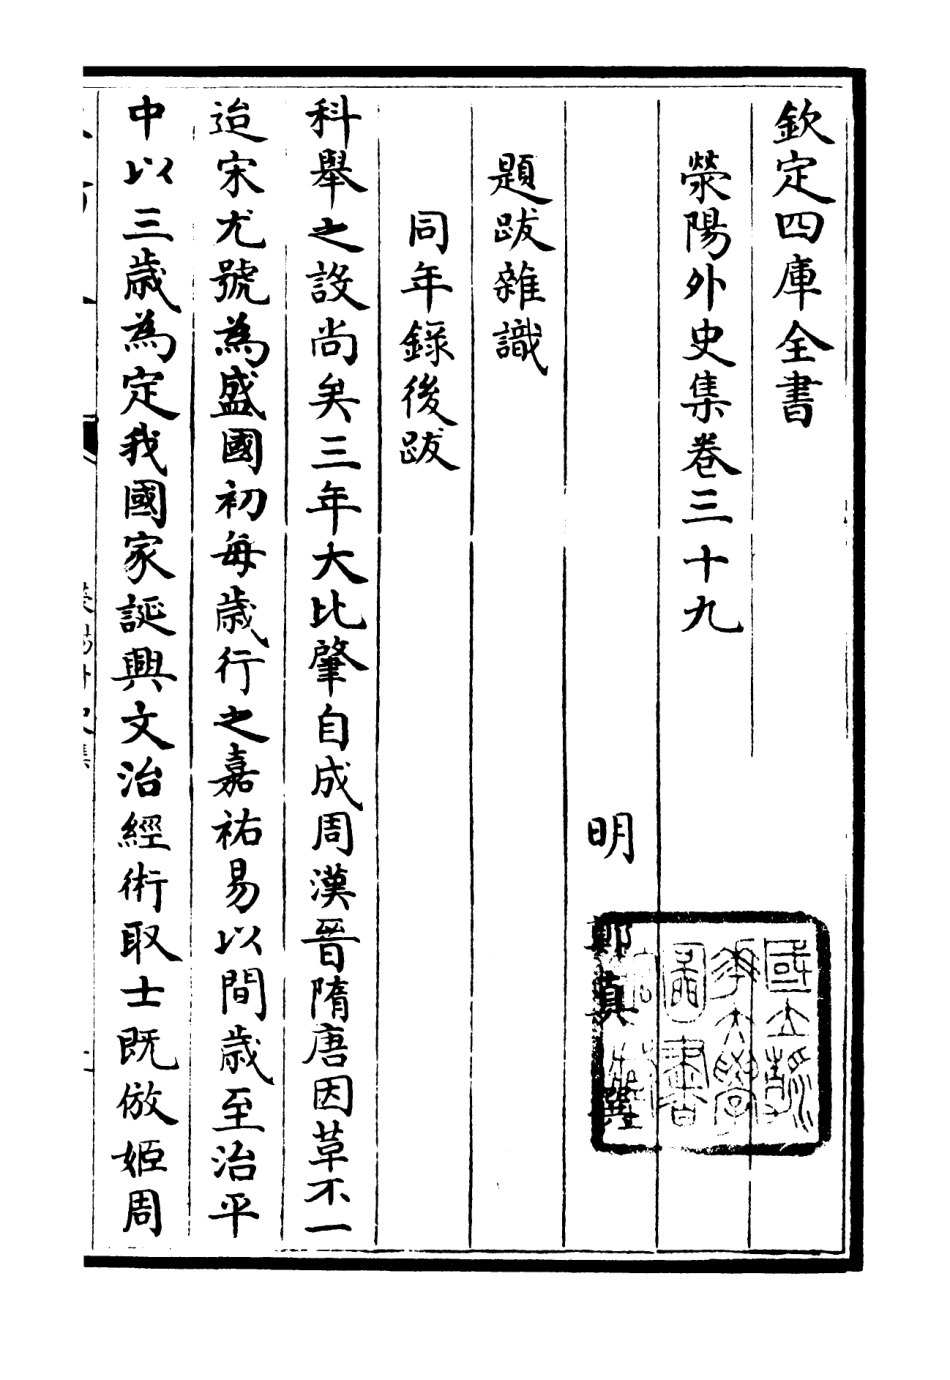 欽定四庫全書
滎陽外史集卷三十九
明 鄭真 撰
題跋雜識
同年錄後跋
科舉之設尚矣三年大比肇自成周漢晉隋唐因革不一
迨宋尤號為盛國初每歲行之嘉祐易以間歲至治平
中以三歲為定我國家誕興文治經術取士既倣姬周